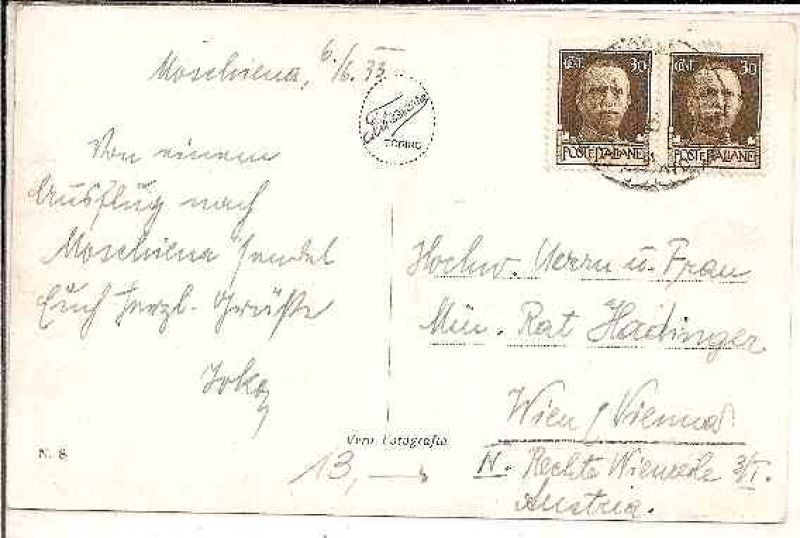 Moschiena, 6./6. 33.
Von einem
Ausflug nach
Moschiena sendet
Euch herzl. Grüße
CENT. 30
POSTE ITALIANE
CENT. 30
POSTE ITALIANE
TORINO
Hochw. Herrn u. Frau
Min. Rat Haidinger
Wien / Vienna
IV. Rechte Wienzeile 3/I.
Austria.
Vera Fotografia
N. 8
13,—